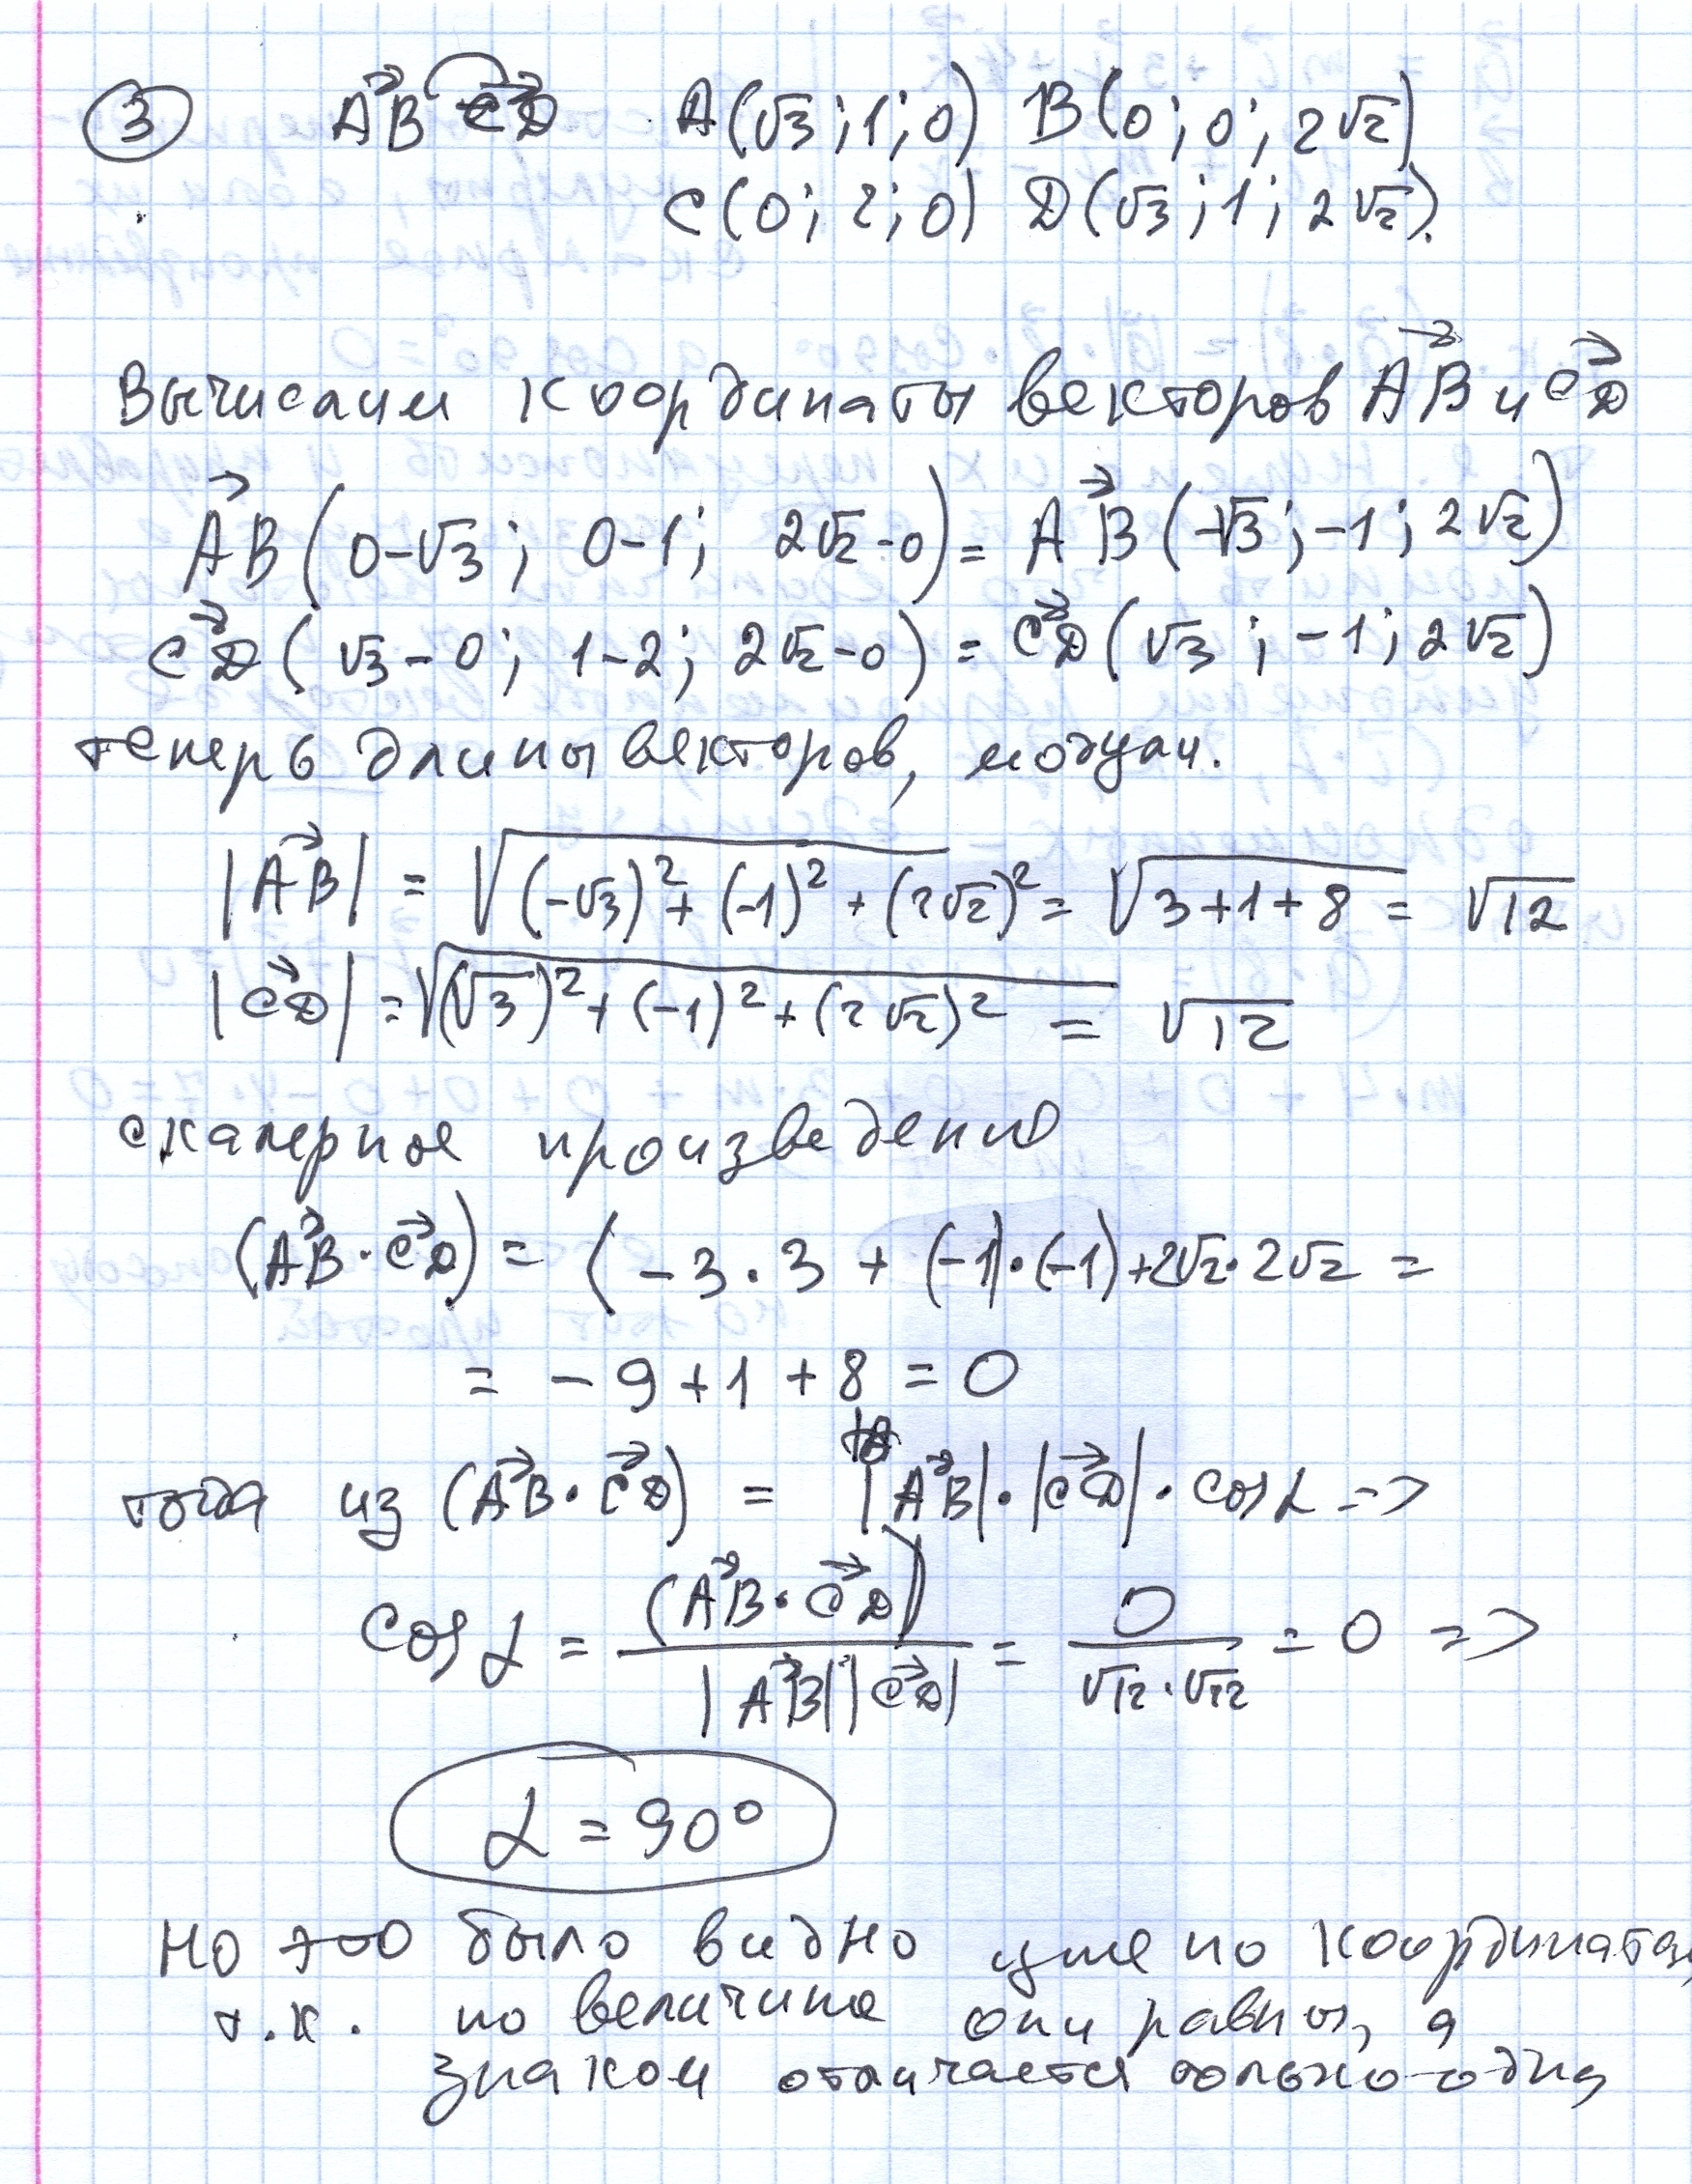 ③ A⃗B C⃗D A(√3; 1; 0) B(0; 0; 2√2)
C(0; 2; 0) D(√3; 1; 2√2).
Вычислим координаты векторов A⃗B и C⃗D
A⃗B(0-√3; 0-1; 2√2-0) = A⃗B(-√3; -1; 2√2)
C⃗D(√3-0; 1-2; 2√2-0) = C⃗D(√3; -1; 2√2)
теперь длины векторов, модули.
|A⃗B| = √((-√3)² + (-1)² + (2√2)²) = √(3+1+8) = √12
|C⃗D| = √((√3)² + (-1)² + (2√2)²) = √12
скалерное произведение
(A⃗B · C⃗D) = (-3 · 3 + (-1)·(-1) + 2√2 · 2√2 =
= -9 + 1 + 8 = 0
тогда из (A⃗B · C⃗D) = |A⃗B| · |C⃗D| · cos α =>
cos α = (A⃗B · C⃗D) / |A⃗B| |C⃗D| = 0 / √12 · √12 = 0 =>
α = 90°
Но это было видно уже по координатам,
т.к. по величине они равны, а
знаком отличается только одна